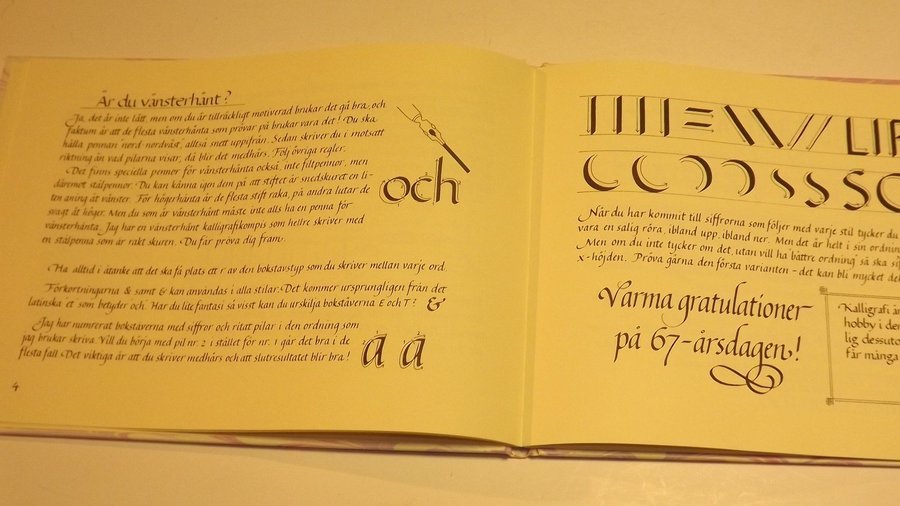 Är du vänsterhänt?
Ja, det är inte lätt, men om du är tillräckligt motiverad brukar det gå bra, och
faktum är att de flesta vänsterhänta som provar på brukar vara det! Du ska
hålla pennan nord nordväst, alltså snett uppifrån. Sedan skriver du i motsatt
riktning än vad pilarna visar, då blir det medhårs. Följ övriga regler.
Det finns speciella pennor för vänsterhänta också, inte filtpennor, men
däremot stålpennor. Du kan känna igen dem på att stiftet är snedskuret en li-
ten aning åt vänster. För högerhänta är de flesta stift raka, på andra lutar de
svagt åt höger. Men du som är vänsterhänt måste inte alls ha en penna för
vänsterhänta. Jag har en vänsterhänt kalligrafikompis som hellre skriver med
en stålpenna som är rakt skuren. Du får pröva dig fram.
och
Ha alltid i åtanke att det ska få plats ett r av den bokstavstyp som du skriver mellan varje ord.
Förkortningarna & samt & kan användas i alla stilar. Det kommer ursprungligen från det
latinska et som betyder och. Har du lite fantasi så visst kan du urskilja bokstäverna E och T! &
Jag har numrerat bokstäverna med siffror och ritat pilar i den ordning som
jag brukar skriva. Vill du börja med pil nr. 2 i stället för nr. 1 går det bra i de
flesta fall. Det viktiga är att du skriver medhårs och att slutresultatet blir bra!
a a
4
När du har kommit till siffrorna som följer med varje stil tycker du
vara en salig röra, ibland upp, ibland ner. Men det är helt i sin ordning
Men om du inte tycker om det, utan vill ha bättre ordning så ska
x-höjden. Pröva gärna den första varianten - det kan bli mycket
Varma gratulationer
på 67-årsdagen!
Kalligrafi
hobby i
lig dessuto
får många